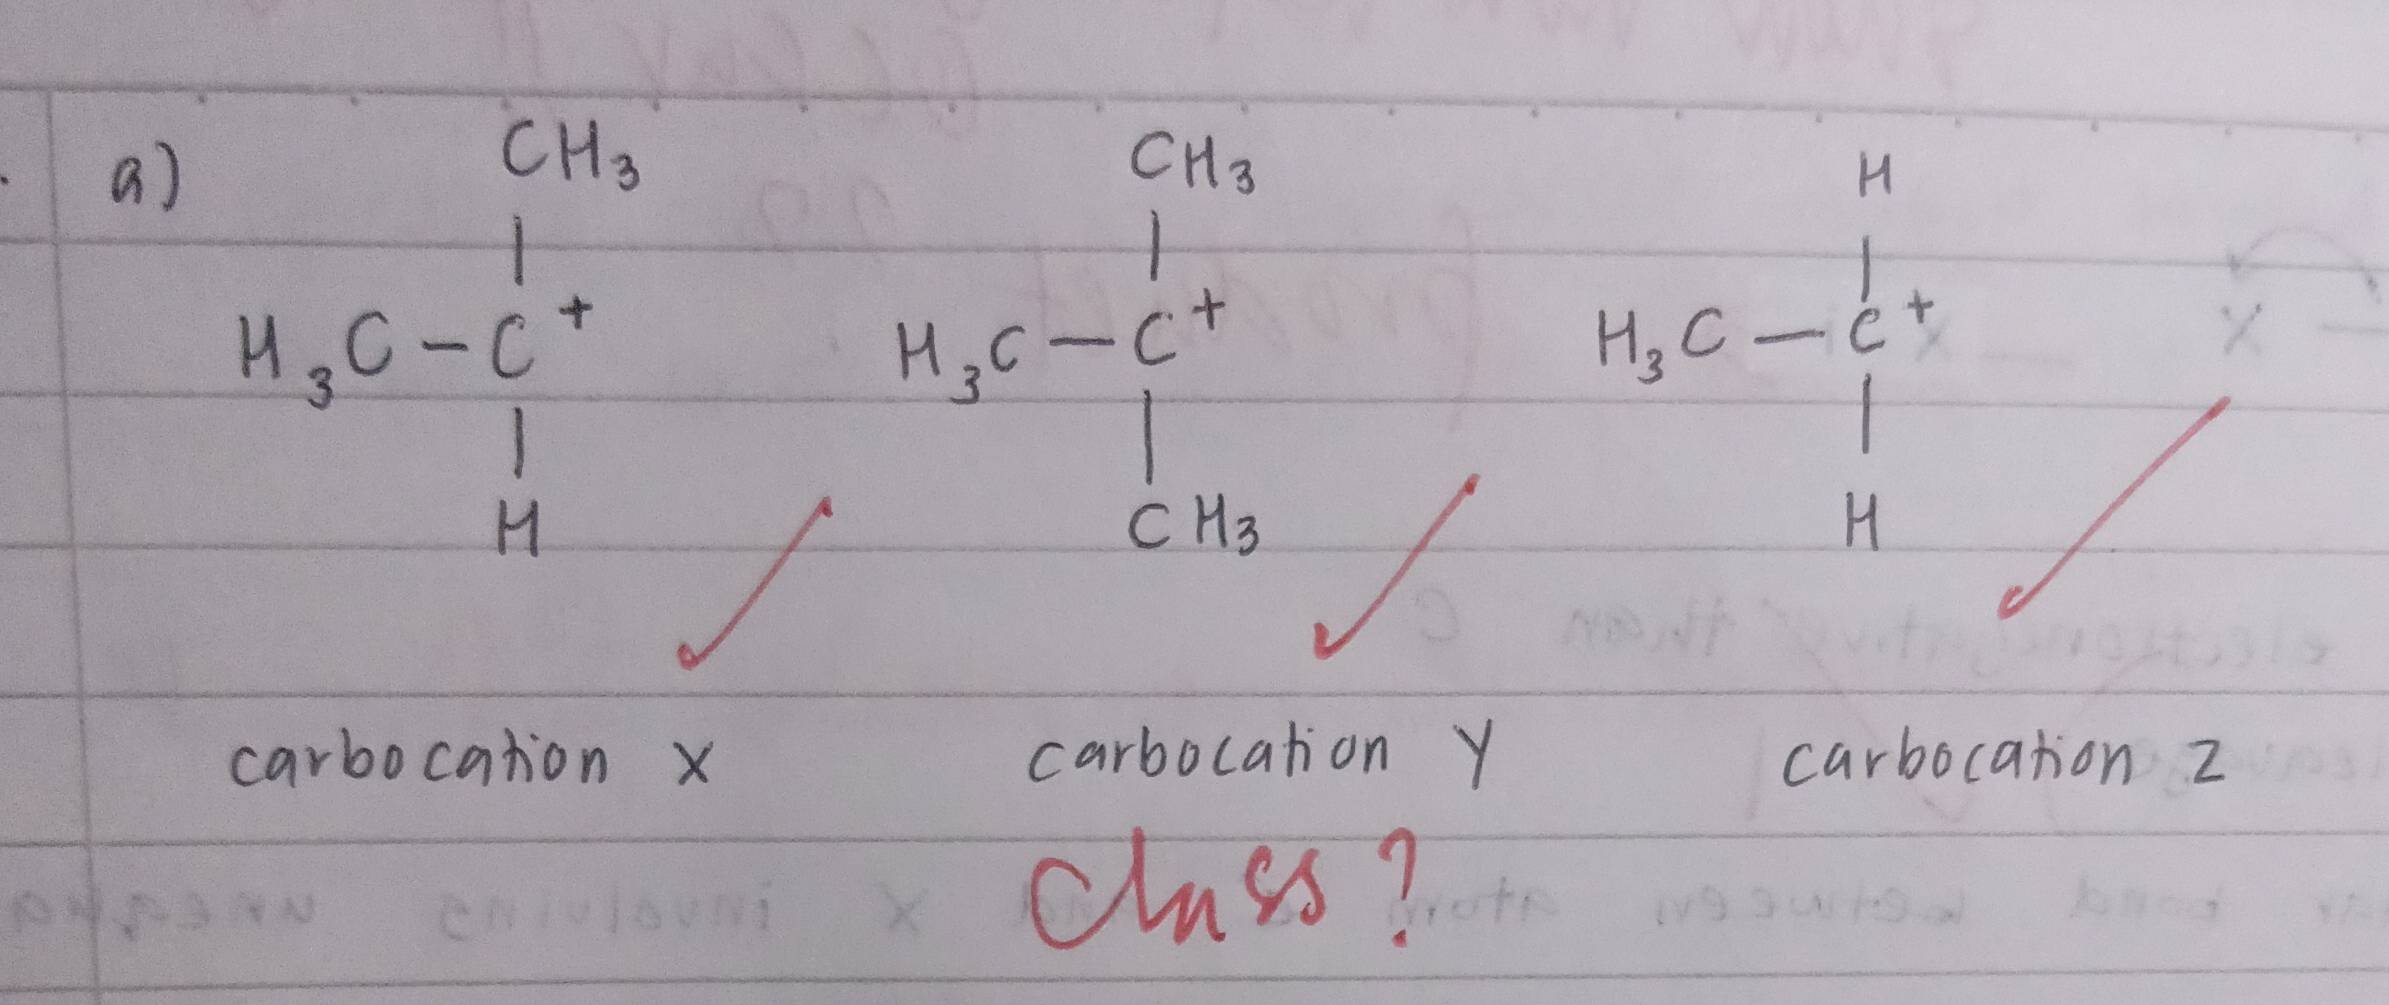 a)
CH3 CH3 H
| | |
H3C-C+ H3C-C+ H3C-C+
| | |
H CH3 H
carbocation X carbocation Y carbocation Z
Class?